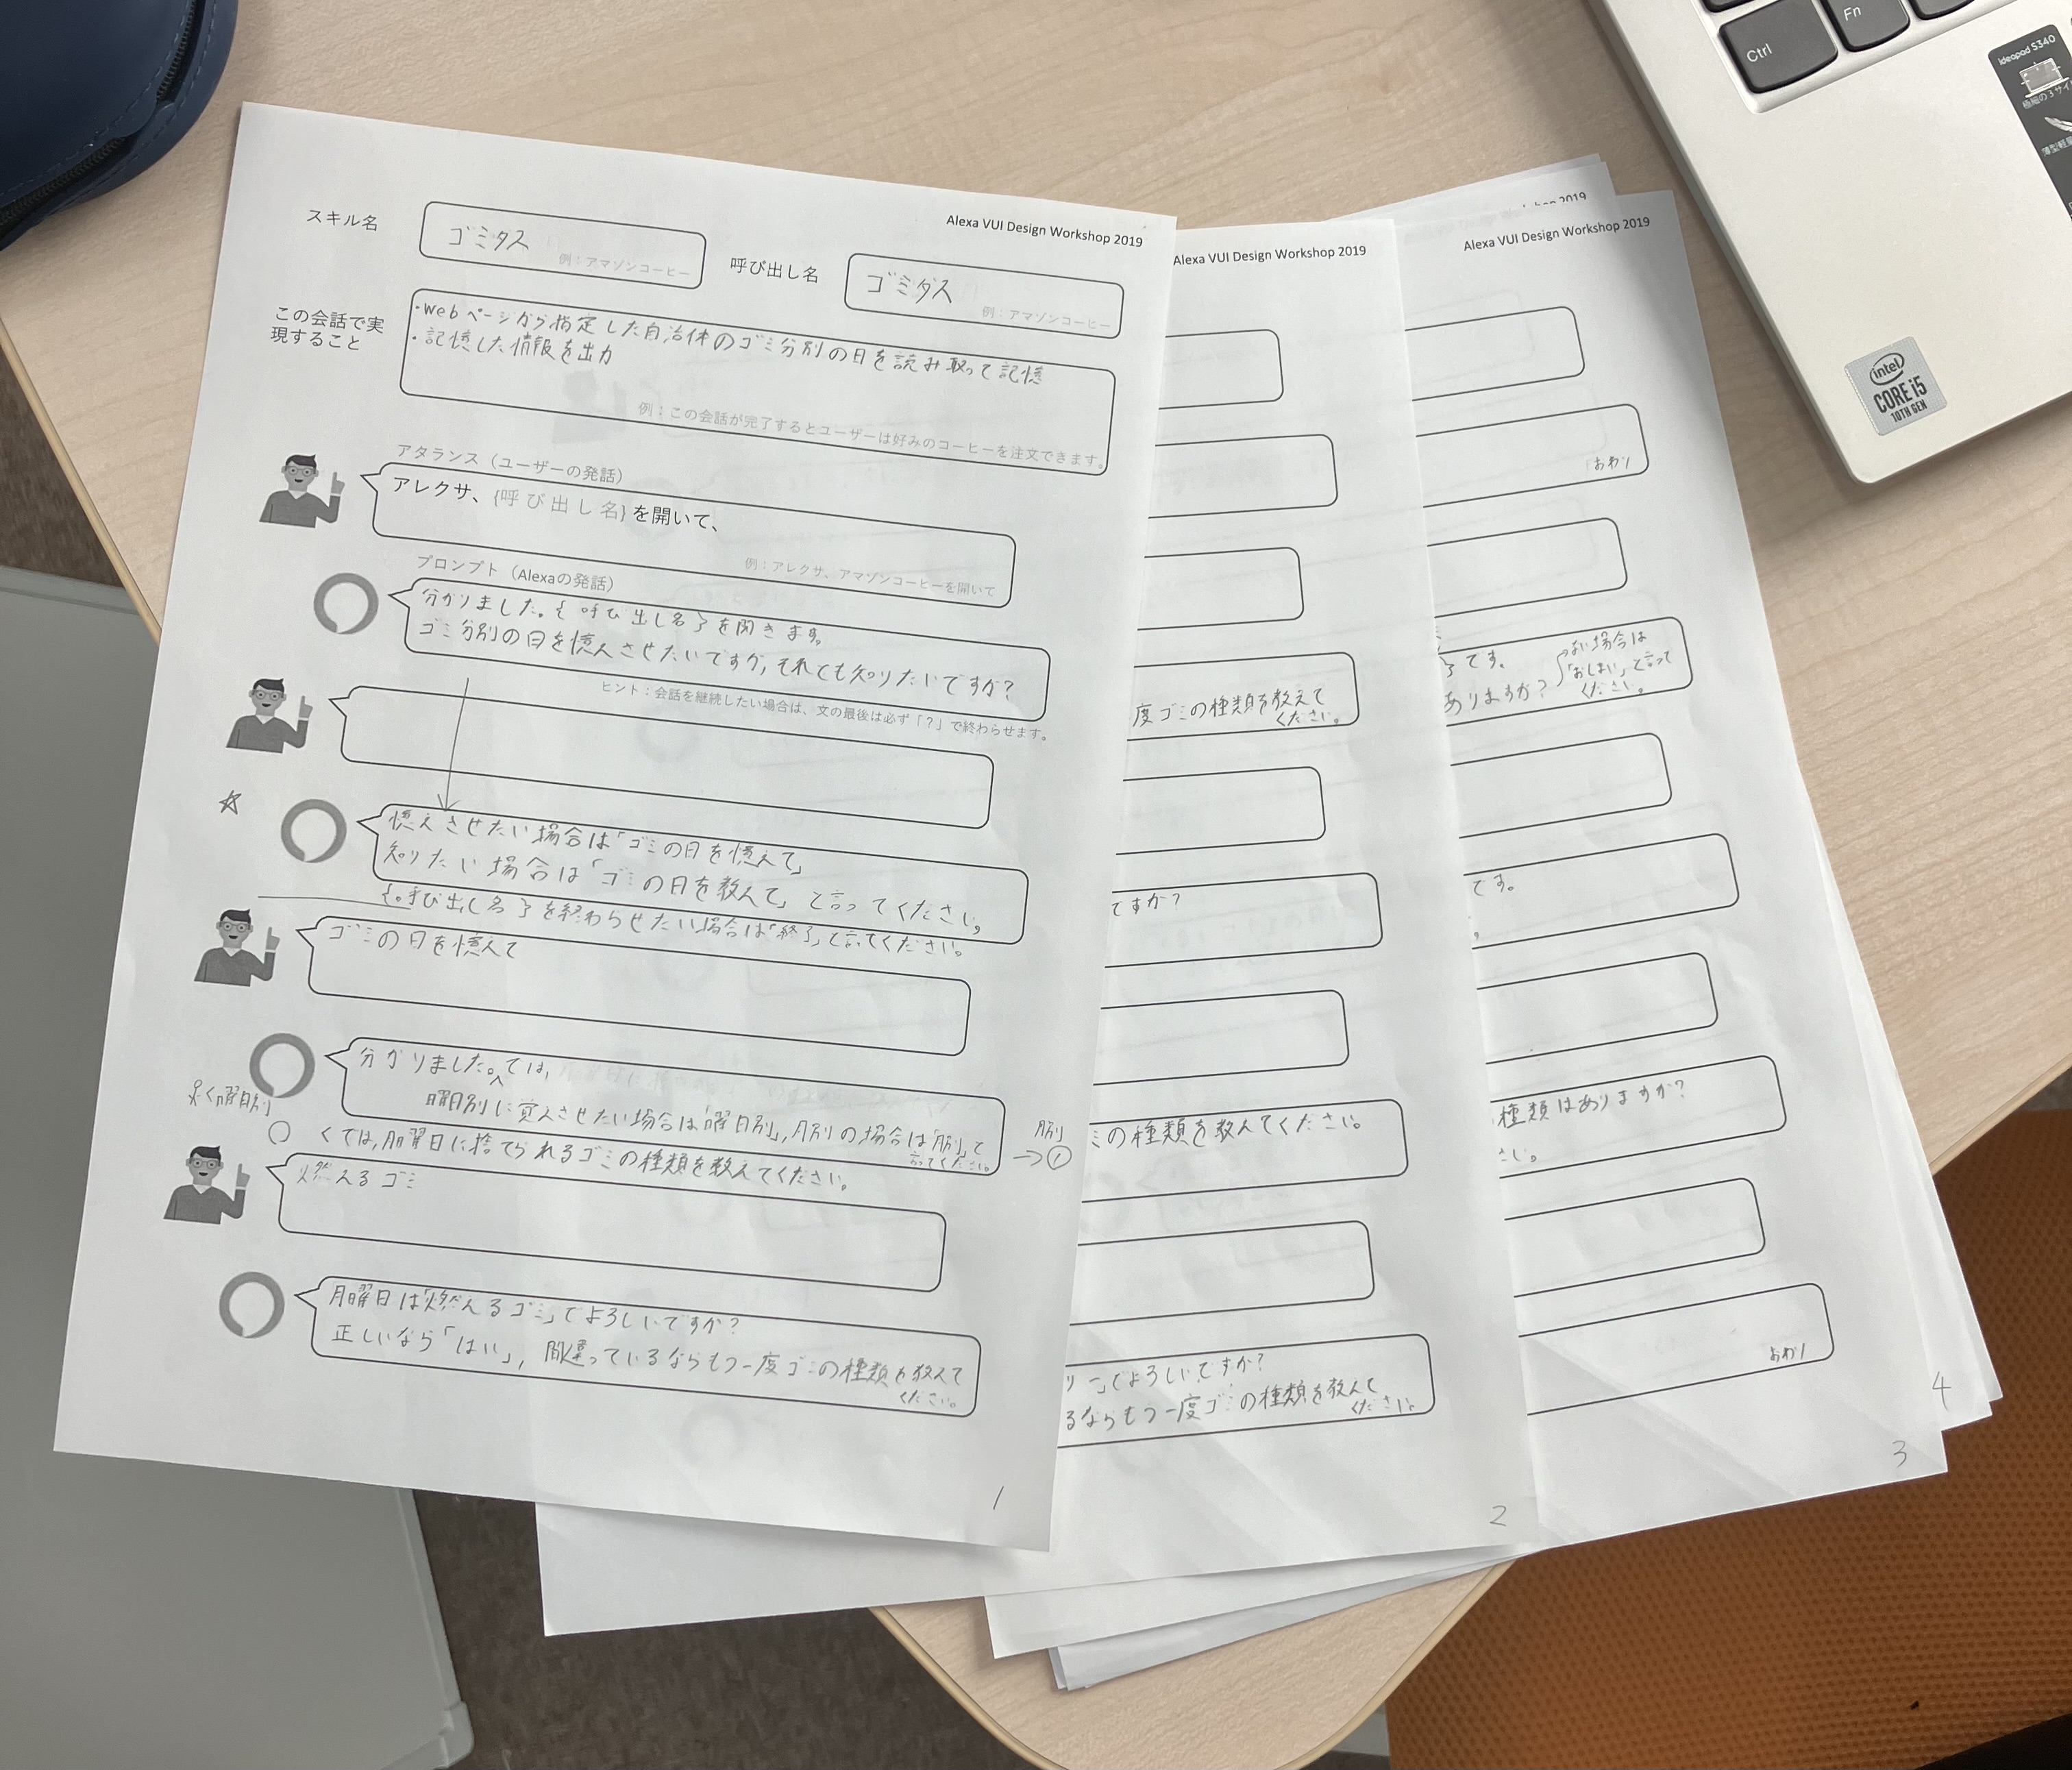 Alexa VUI Design Workshop 2019
スキル名
ゴミダス
例：アマゾンコーヒー
呼び出し名
ゴミダス
例：アマゾンコーヒー
この会話で実
現すること
・Webページから指定した自治体のゴミ分別の日を読み取って記憶
・記憶した情報を出力
例：この会話が完了するとユーザーは好みのコーヒーを注文できます。
アタランス（ユーザーの発話）
アレクサ、{呼び出し名}を開いて、
例：アレクサ、アマゾンコーヒーを開いて
プロンプト（Alexaの発話）
分かりました。{呼び出し名}を開きます。
ゴミ分別の日を憶えさせたいですか,それとも知りたいですか?
ヒント：会話を継続したい場合は、文の最後は必ず「？」で終わらせます。
☆
憶えさせたい場合は「ゴミの日を憶えて」
知りたい場合は「ゴミの日を教えて」と言ってください。
{呼び出し名}を終わらせたい場合は「終了」と言ってください。
ゴミの日を憶えて
分かりました。では,
曜日別に覚えさせたい場合は「曜日別」,月別の場合は「月別」と
言ってください。
曜日別
月別
→①
では,月曜日に捨てられるゴミの種類を教えてください。
燃えるゴミ
月曜日は「燃えるゴミ」でよろしいですか?
正しいなら「はい」, 間違っているならもう一度ゴミの種類を教えて
ください。
1
Alexa VUI Design Workshop 2019
度ゴミの種類を教えて
ください。
ですか?
ミの種類を教えてください。
でよろしいですか?
るならもう一度ゴミの種類を教えて
ください。
2
Alexa VUI Design Workshop 2019
おわり
です。
ありますか?
ない場合は
「おしまい」と言って
ください。
です。
種類はありますか?
さい。
おわり
3
4
kshop 2019
Ctrl
Fn
ideapad S340
intel
CORE i5
10TH GEN